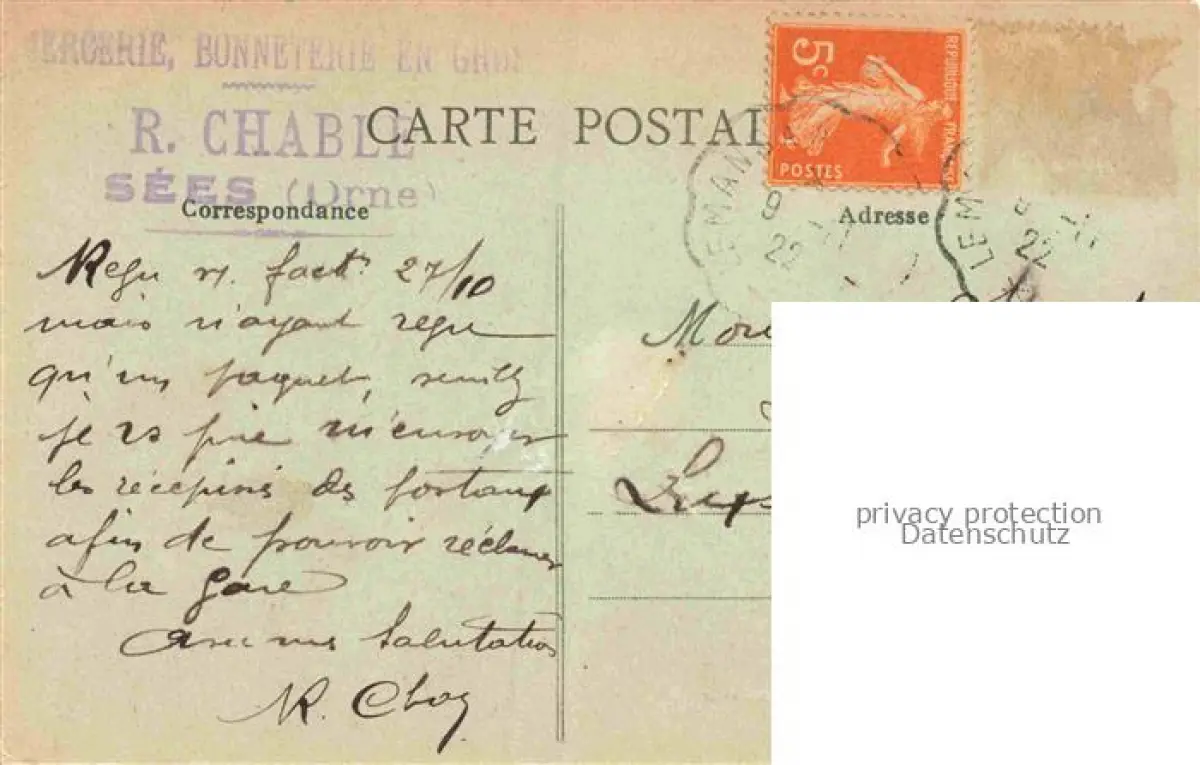 MERCERIE, BONNETERIE EN GROS
R. CHABLE
SÉES (Orne)
CARTE POSTAL
5c
REPUBLIQUE FRANC
POSTES
LE MAN
8
22
LE M
22
Correspondance
Adresse
Reçu n/ fact. 27/10
mais n'ayant reçu
qu'un paquet,
je vs prie m'envoyer
les récépissés des
afin de pouvoir réclamer
à la gare
Avec mes Salutations
R.
privacy protection
Datenschutz